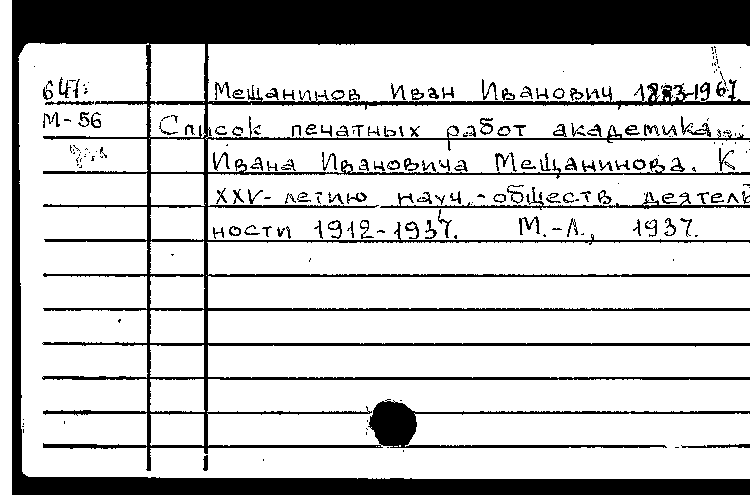 Мещанинов, Иван Иванович, 1883-1967.
М-56 Список печатных работ академика
Ивана Ивановича Мещанинова. К
XXV-летию науч.-обществ. деятель
ности 1912-1937. М.-Л., 1937.